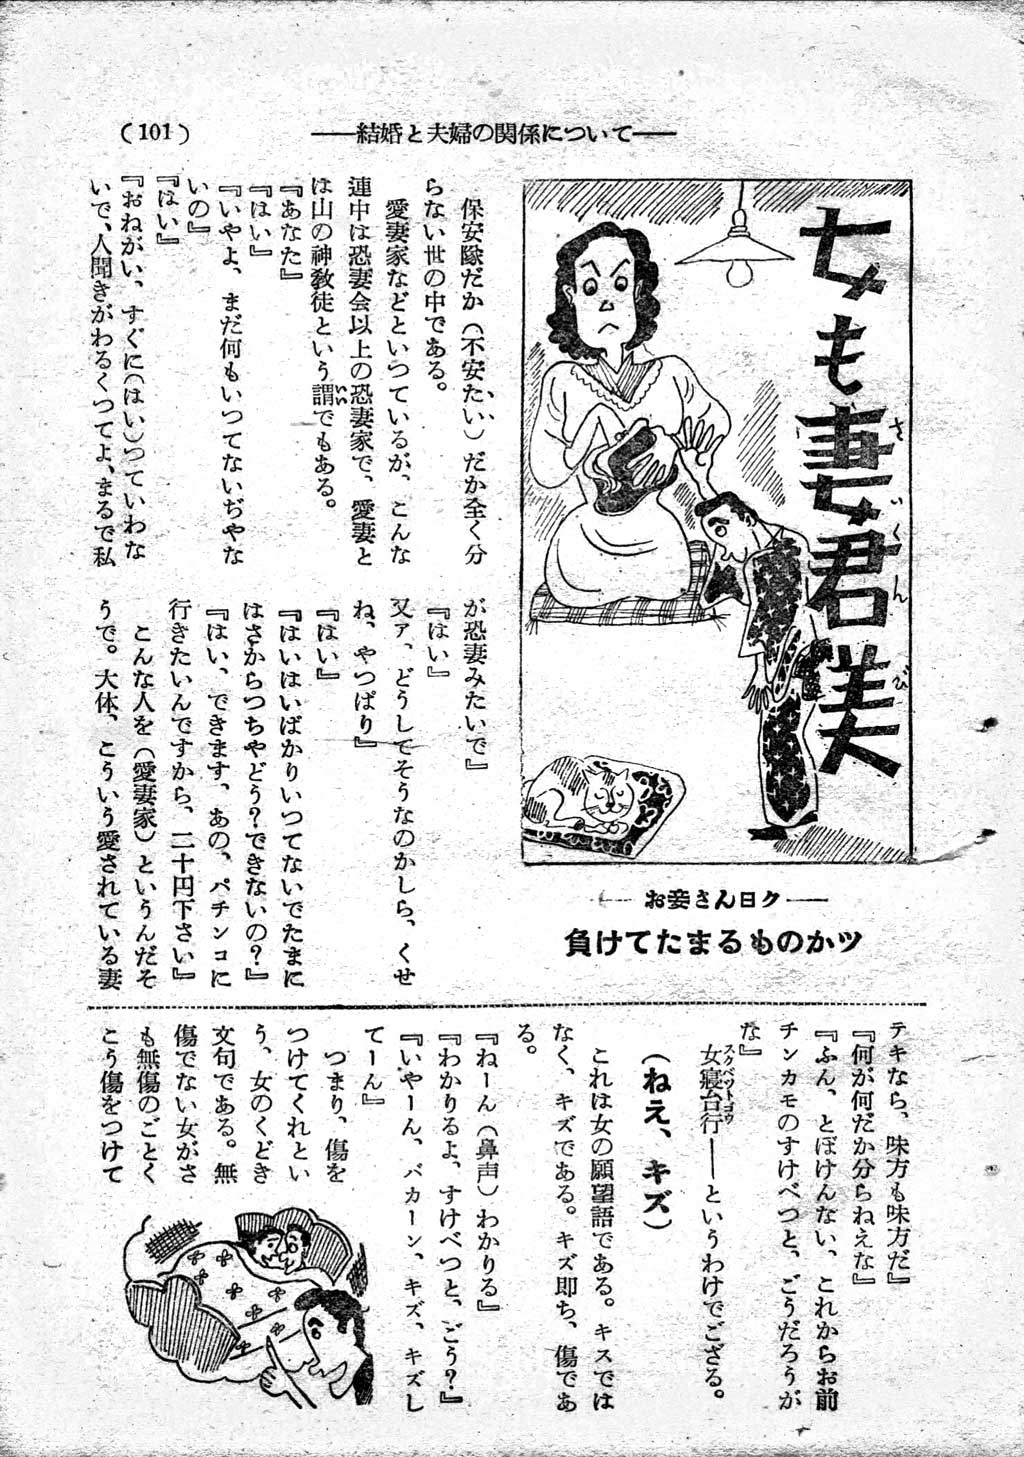 (101)
――結婚と夫婦の関係について――
女も妻君美
さいくんび
―お妾さん曰ク―
負けてたまるものかッ
保安隊だか(不安たい)だか全く分
らない世の中である。
愛妻家などといつているが、こんな
連中は恐妻会以上の恐妻家で、愛妻と
は山の神教徒という謂でもある。
いい
『あなた』
『はい』
『いやよ、まだ何もいつてないぢやな
いの』
『はい』
『おねがい、すぐに(はい)つていわな
いで、人聞きがわるくつてよ、まるで私
が恐妻みたいで』
『はい』
又ァ、どうしてそうなのかしら、くせ
ね、やつぱり』
『はい』
『はいはいばかりいつてないでたまに
はさからつちやどう?できないの?』
『はい、できます、あの、パチンコに
行きたいんですから、二十円下さい』
こんな人を(愛妻家)というんだそ
うで。大体、こういう愛されている妻
テキなら、味方も味方だ』
『何が何だか分らねえな』
『ふん、とぼけんない、これからお前
チンカモのすけべつと、ごうだろうが
な』
女寝台行――というわけでござる。
スケベツトゴウ
(ねえ、キズ)
これは女の願望語である。キスでは
なく、キズである。キズ即ち、傷であ
る。
『ねーん(鼻声)わかりる』
『わかりるよ、すけべつと、ごう?』
『いやーん、バカーン、キズ、キズし
てーん』
つまり、傷を
つけてくれとい
う、女のくどき
文句である。無
傷でない女がさ
も無傷のごとく
こう傷をつけて